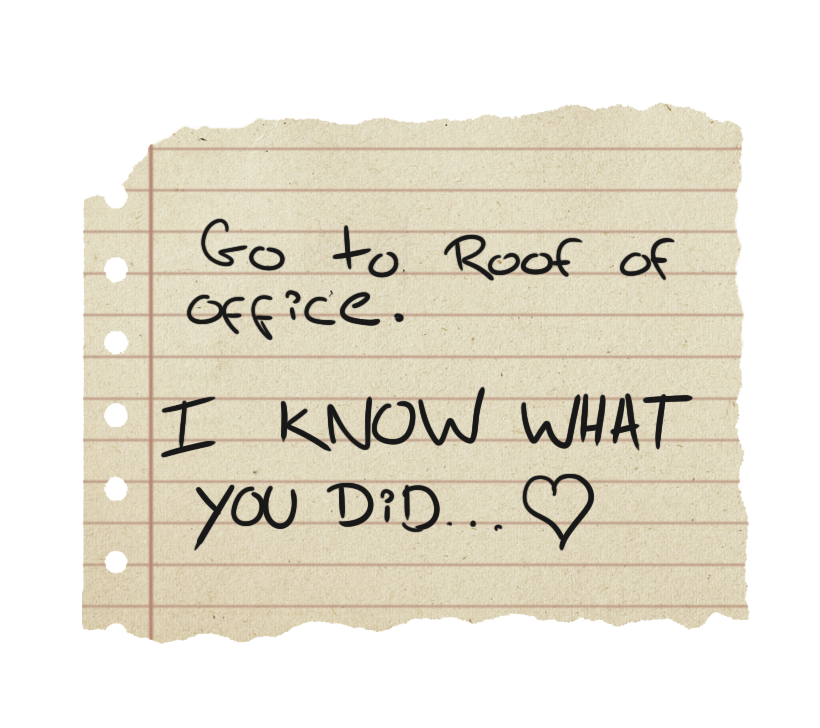 Go to Roof of
office.
I KNOW WHAT
YOU DiD... ♡